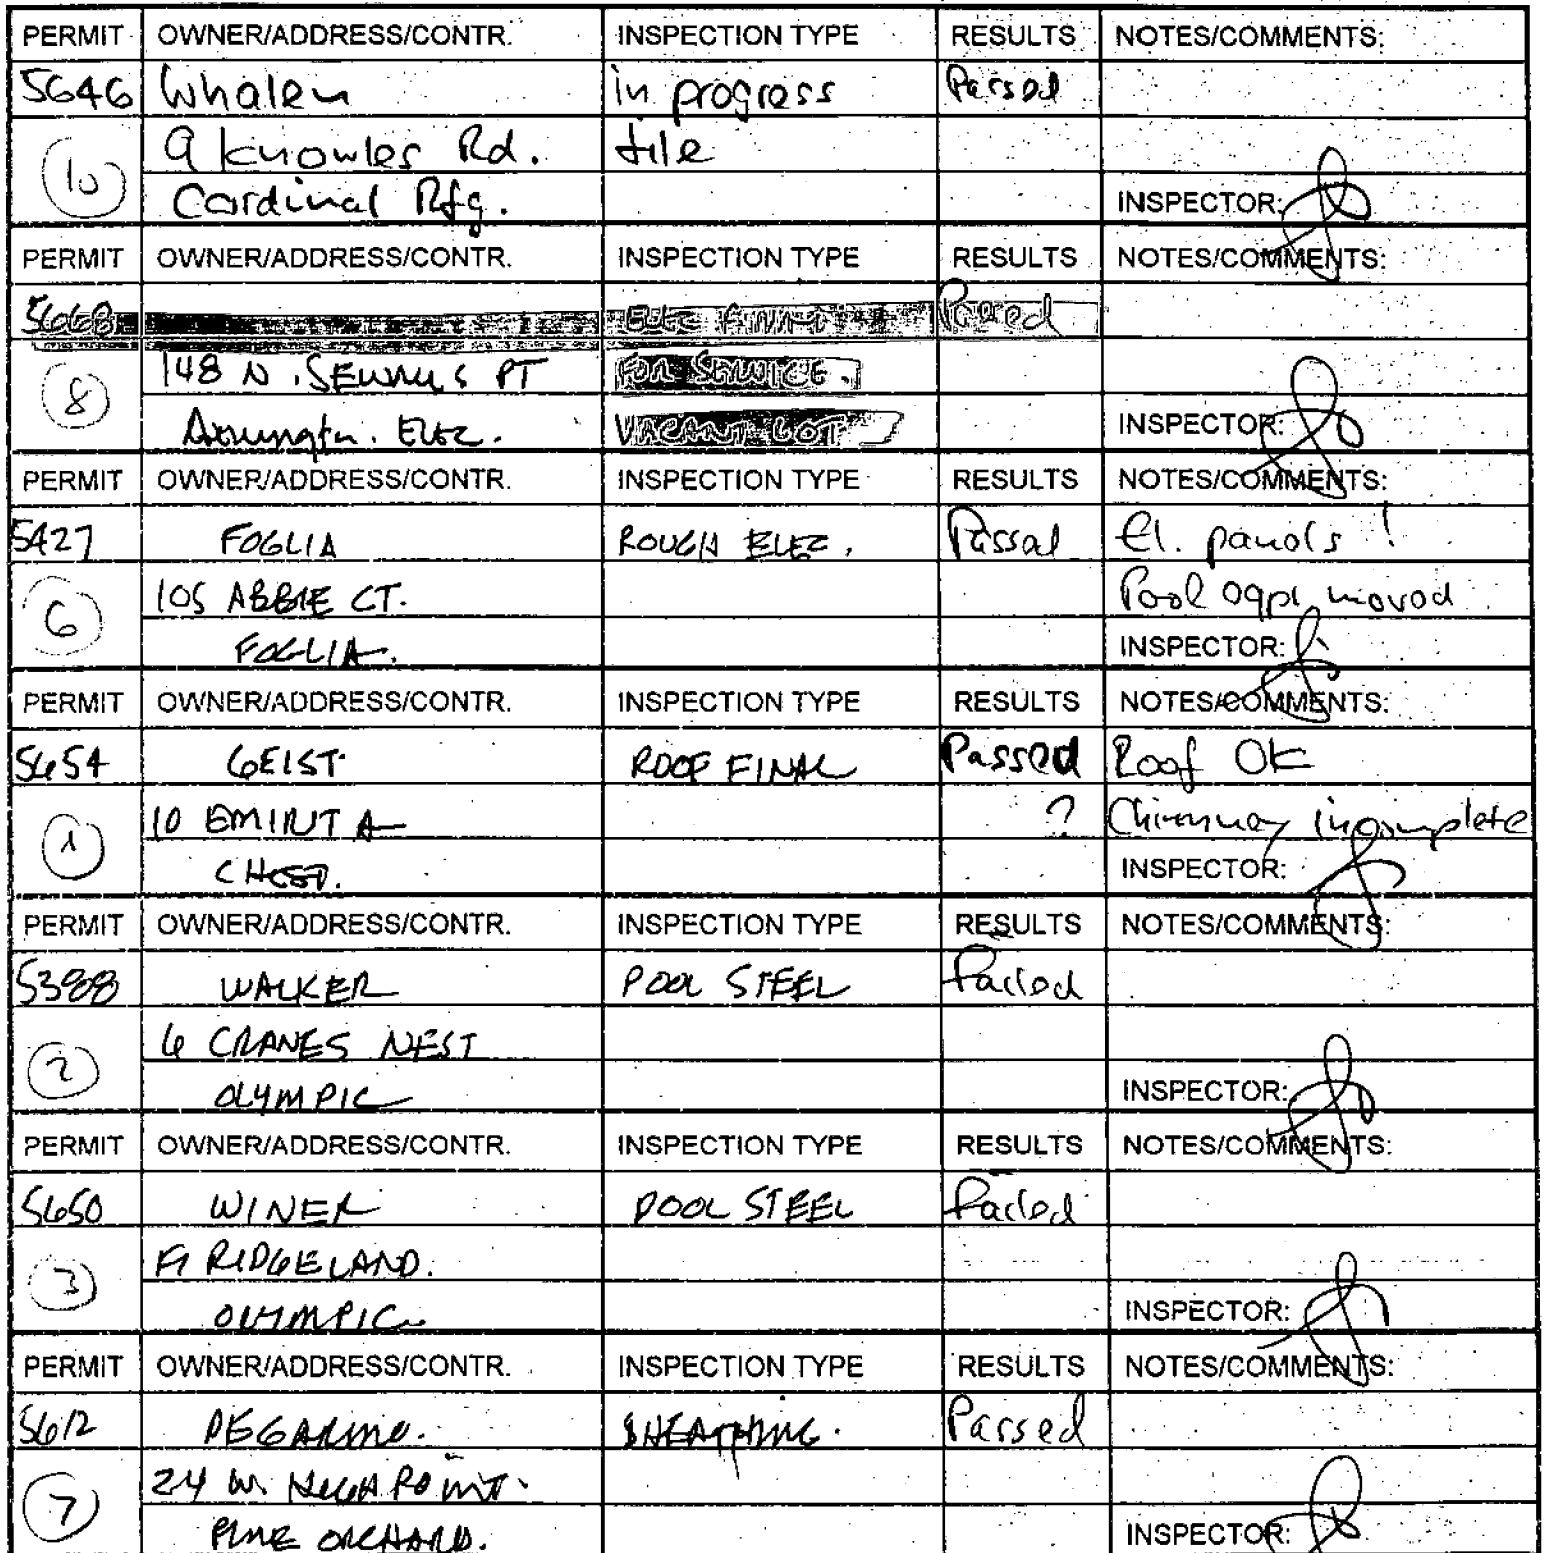 PERMIT OWNER/ADDRESS/CONTR. INSPECTION TYPE RESULTS NOTES/COMMENTS:
5646 Whalen in progress Passed
10 9 Knowles Rd. tile
Cardinal Rfg. INSPECTOR:
PERMIT OWNER/ADDRESS/CONTR. INSPECTION TYPE RESULTS NOTES/COMMENTS:
5668 ELEC FINAL Passed
8 148 N. SEWALLS PT FOR SERVICE.
ELEC. VACANT LOT INSPECTOR:
PERMIT OWNER/ADDRESS/CONTR. INSPECTION TYPE RESULTS NOTES/COMMENTS:
5427 FOGLIA ROUGH ELEC. Passed El. panels !
6 105 ABBIE CT. Pool moved
FOGLIA. INSPECTOR:
PERMIT OWNER/ADDRESS/CONTR. INSPECTION TYPE RESULTS NOTES/COMMENTS:
5654 GEIST ROOF FINAL Passed Roof OK
1 10 EMIRITA ? Chimney incomplete
INSPECTOR:
PERMIT OWNER/ADDRESS/CONTR. INSPECTION TYPE RESULTS NOTES/COMMENTS:
5388 WALKER POOL STEEL Failed
2 6 CRANES NEST
OLYMPIC INSPECTOR:
PERMIT OWNER/ADDRESS/CONTR. INSPECTION TYPE RESULTS NOTES/COMMENTS:
5650 WINER POOL STEEL Failed
3 RIDGELAND.
OLYMPIC INSPECTOR:
PERMIT OWNER/ADDRESS/CONTR. INSPECTION TYPE RESULTS NOTES/COMMENTS:
5612 DEGARMO. SHEATHING. Passed
7 24 W. HIGH POINT.
PINE ORCHARD. INSPECTOR: